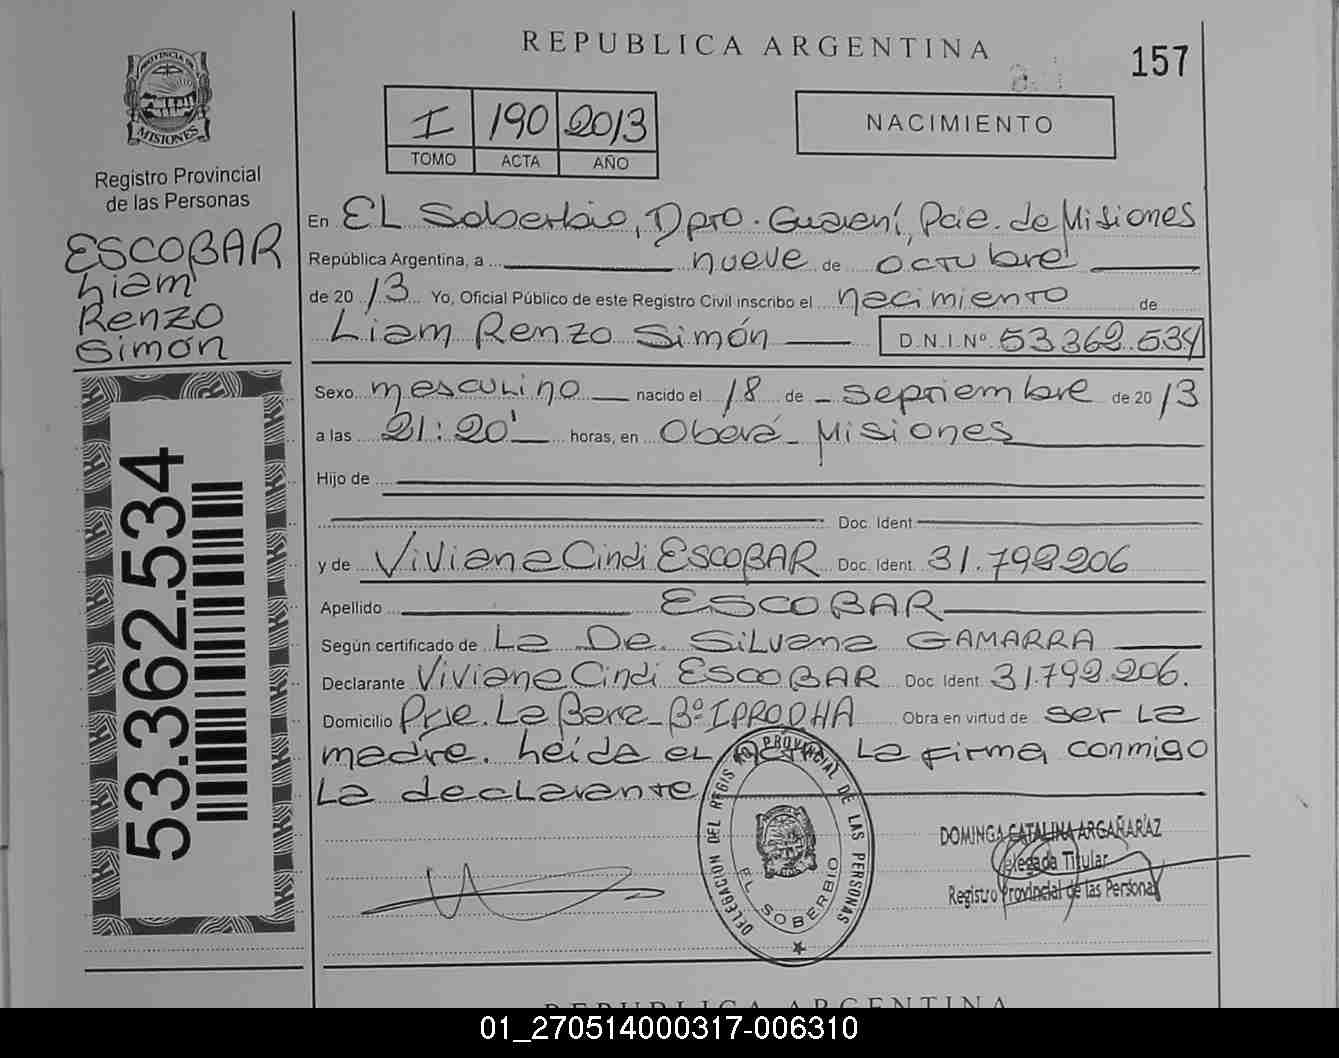 REPUBLICA ARGENTINA
157
PROVINCIA DE
MISIONES
Registro Provincial
de las Personas
ESCOBAR
Liam
Renzo
Simón
53.362.534
I 190 2013
TOMO ACTA AÑO
NACIMIENTO
En EL Soberbio, Dpto. Guaraní, Pcia. de Misiones
República Argentina, a nueve de octubre
de 2013 Yo, Oficial Público de este Registro Civil inscribo el nacimiento de
Liam Renzo Simón D.N.I.Nº 53.362.534
Sexo masculino nacido el 18 de septiembre de 2013
a las 21:20' horas, en Oberá - Misiones
Hijo de
Doc. Ident
y de Viviana Cindi ESCOBAR Doc. Ident. 31.792.206
Apellido ESCOBAR
Según certificado de La De. Silvana GAMARRA
Declarante Viviana Cindi ESCOBAR Doc. Ident. 31.792.206.
Domicilio Pje. La Bera - Bº IPRODHA Obra en virtud de ser La
madre. Leída el La firma conmigo
La declarante
DELEGACION DEL REGISTRO PROVINCIAL DE LAS PERSONAS
EL SOBERBIO
DOMINGA CATALINA ARGAÑARAZ
Delegada Titular
Registro Provincial de las Personas
REPUBLICA ARGENTINA
01_270514000317-006310